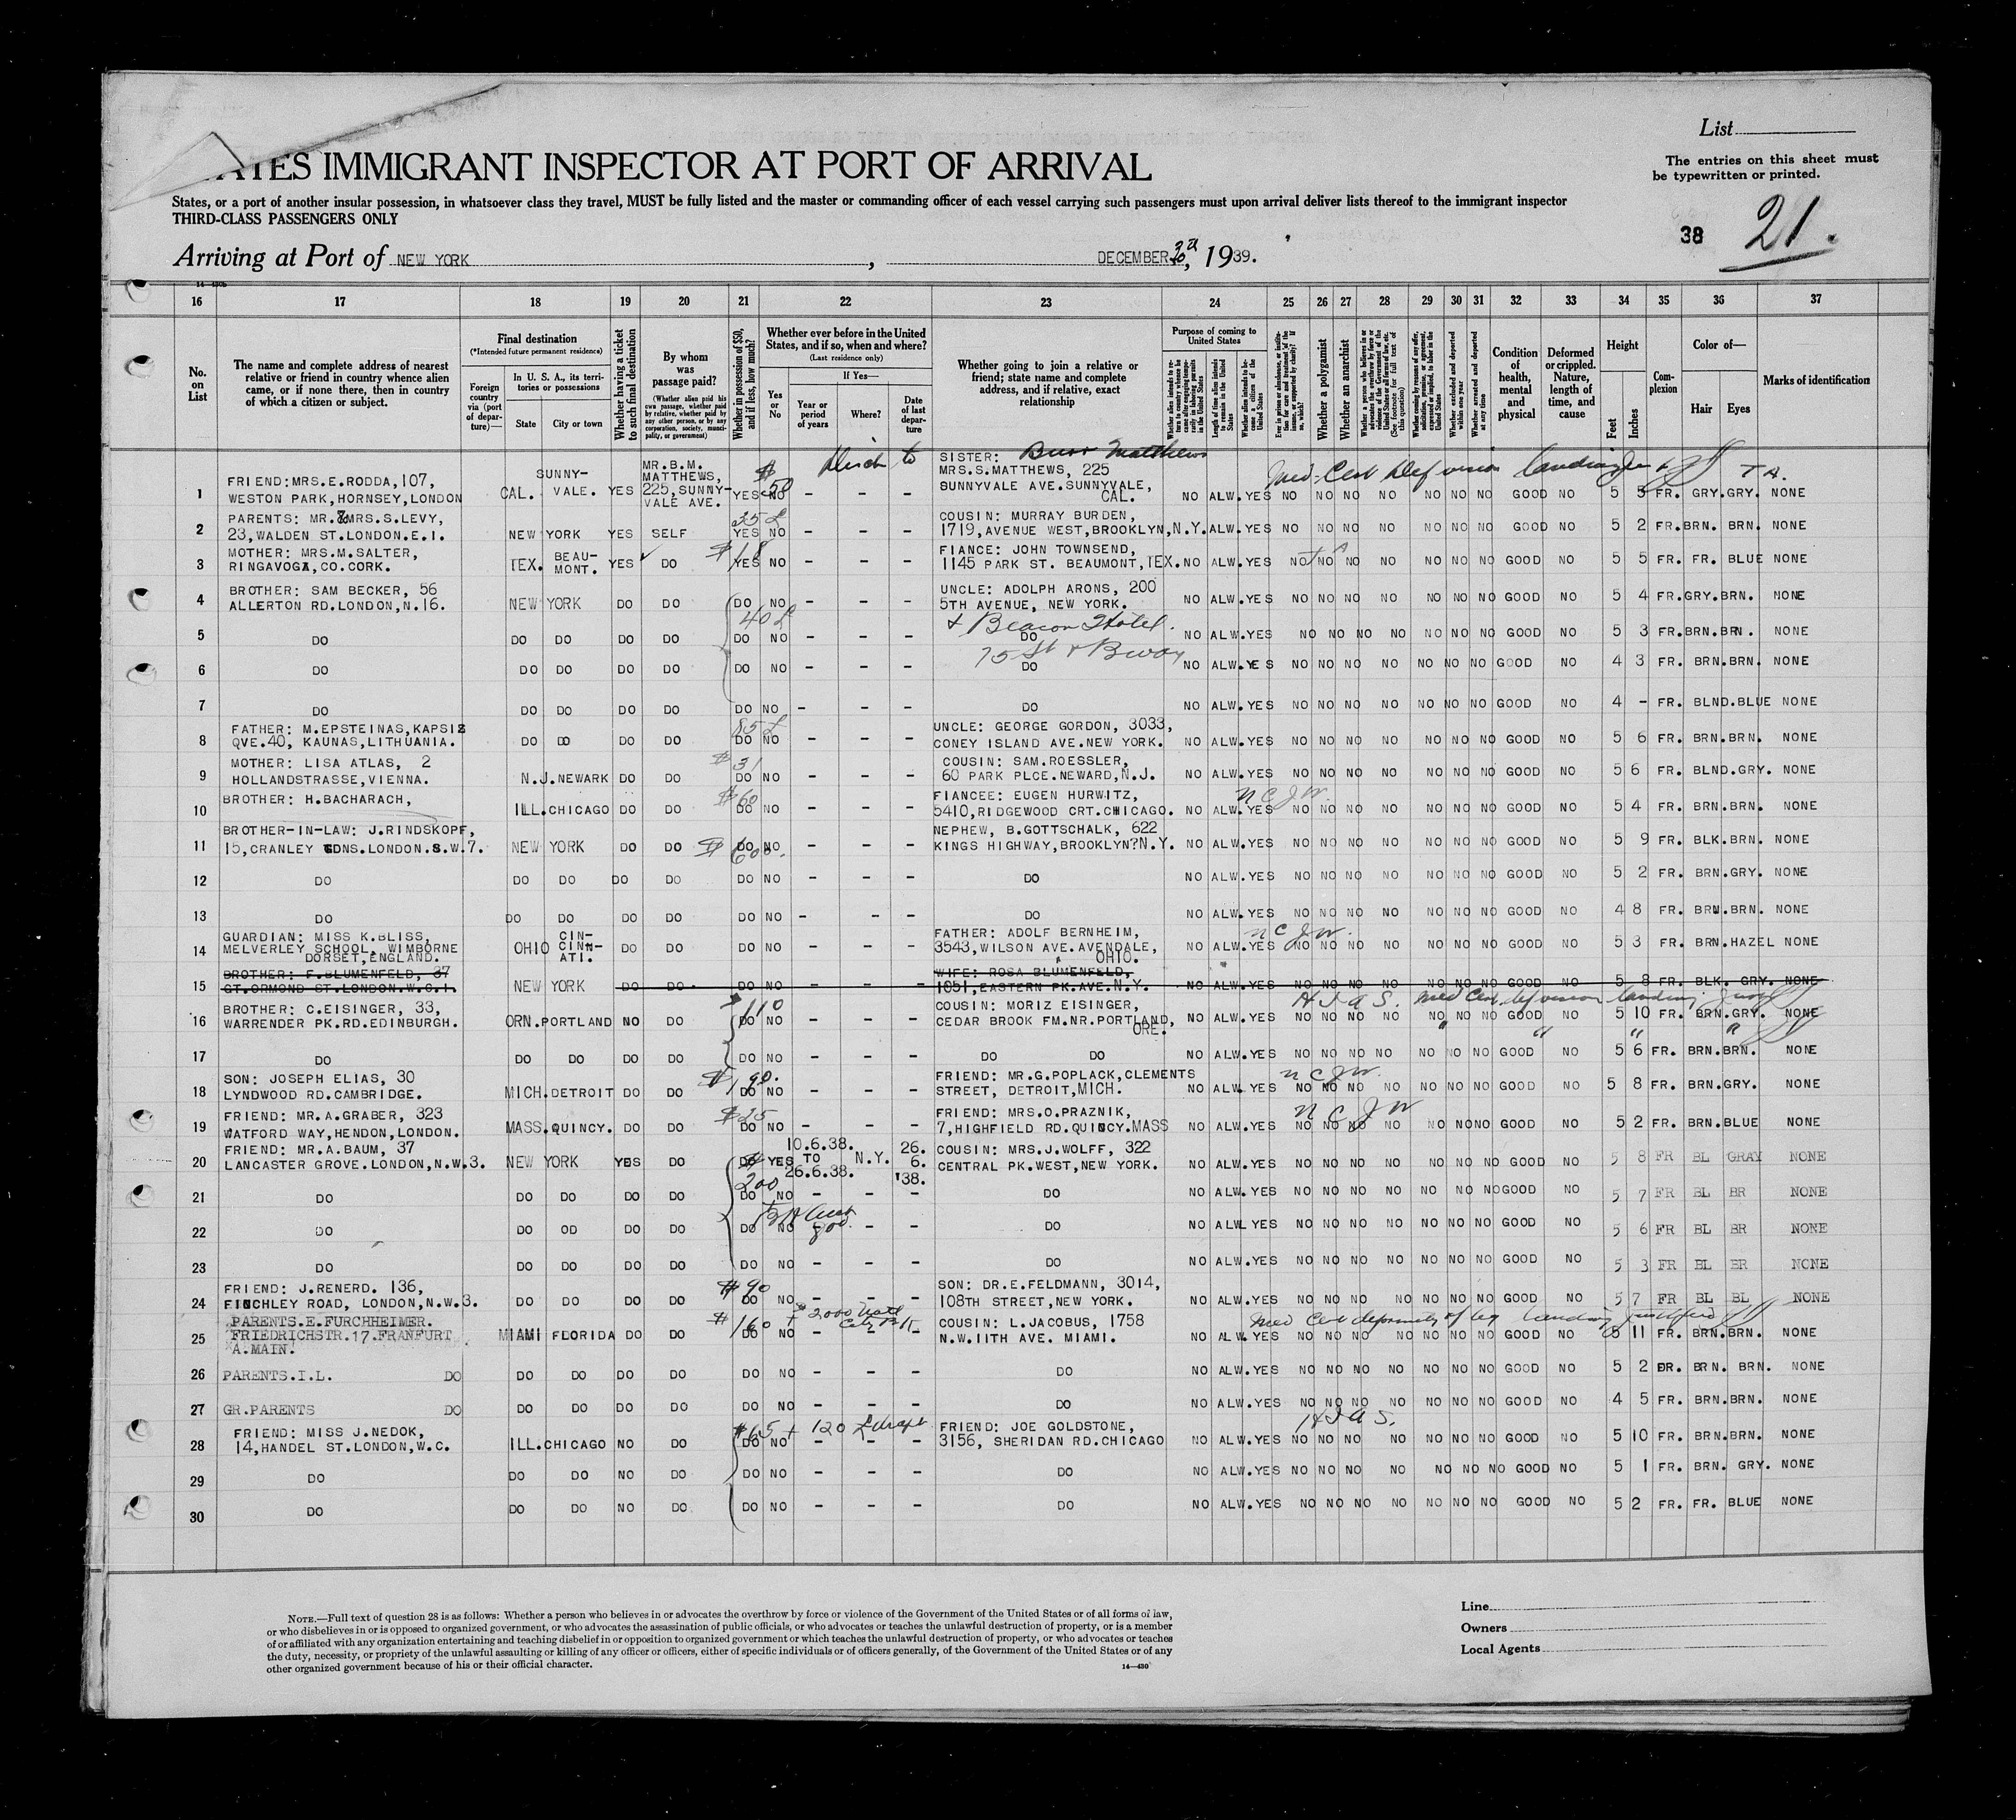 List
ATES IMMIGRANT INSPECTOR AT PORT OF ARRIVAL
The entries on this sheet must
be typewritten or printed.
States, or a port of another insular possession, in whatsoever class they travel, MUST be fully listed and the master or commanding officer of each vessel carrying such passengers must upon arrival deliver lists thereof to the immigrant inspector
THIRD-CLASS PASSENGERS ONLY
38 21.
Arriving at Port of NEW YORK , DECEMBER 1939.
16 17 18 19 20 21 22 23 24 25 26 27 28 29 30 31 32 33 34 35 36 37
No. on List
The name and complete address of nearest relative or friend in country whence alien came, or if none there, then in country of which a citizen or subject.
Final destination
(*Intended future permanent residence)
Foreign country via (port of departure)—
In U. S. A., its territories or possessions
State City or town
Whether having a ticket to such final destination
By whom was passage paid?
(Whether alien paid his own passage, whether paid by relative, whether paid by any other person, or by any corporation, society, municipality, or government)
Whether in possession of $50, and if less, how much?
Whether ever before in the United States, and if so, when and where?
(Last residence only)
Yes or No
If Yes—
Year or period of years Where? Date of last departure
Whether going to join a relative or friend; state name and complete address, and if relative, exact relationship
Purpose of coming to United States
Whether a polygamist
Whether an anarchist
Condition of health, mental and physical
Deformed or crippled. Nature, length of time, and cause
Height
Feet Inches
Complexion
Color of—
Hair Eyes
Marks of identification
1 FRIEND:MRS.E.RODDA,107, WESTON PARK,HORNSEY,LONDON CAL. SUNNY-VALE. YES MR.B.M. MATTHEWS, 225,SUNNY-VALE AVE. YES $50 NO - - - SISTER: Matthews MRS.S.MATTHEWS, 225 SUNNYVALE AVE.SUNNYVALE, CAL. NO ALW.YES NO NO NO NO NO NO NO GOOD NO 5 5 FR. GRY.GRY. NONE
Med. Cert Def vision landing T A.
2 PARENTS: MR.&MRS.S.LEVY, 23,WALDEN ST.LONDON.E.I. NEW YORK YES SELF 35£ YES NO - - - COUSIN: MURRAY BURDEN, 1719,AVENUE WEST,BROOKLYN,N.Y. ALW.YES NO NO NO NO NO NO NO GOOD NO 5 2 FR.BRN. BRN. NONE
3 MOTHER: MRS.M.SALTER, RINGAVOGA,CO.CORK. TEX. BEAU-MONT. YES DO $18 YES NO - - - FIANCE: JOHN TOWNSEND, 1145 PARK ST. BEAUMONT,TEX. NO ALW.YES NO NO NO NO NO NO NO GOOD NO 5 5 FR. FR. BLUE NONE
4 BROTHER: SAM BECKER, 56 ALLERTON RD.LONDON,N.16. NEW YORK DO DO DO NO - - - UNCLE: ADOLPH ARONS, 200 5TH AVENUE, NEW YORK. NO ALW.YES NO NO NO NO NO NO NO GOOD NO 5 4 FR.GRY.BRN. NONE
40£ & Beacon Hotel.
5 DO DO DO DO DO DO NO - - - DO NO ALW.YES NO NO NO NO NO NO NO GOOD NO 5 3 FR.BRN.BRN. NONE
75 St & Bway
6 DO DO DO DO DO DO NO - - - DO NO ALW.YES NO NO NO NO NO NO NO GOOD NO 4 3 FR. BRN.BRN. NONE
7 DO DO DO DO DO DO NO - - - DO NO ALW.YES NO NO NO NO NO NO NO GOOD NO 4 - FR. BLND.BLUE NONE
8 FATHER: M.EPSTEINAS,KAPSIS QVE.40, KAUNAS,LITHUANIA. DO DO DO DO 85£ DO NO - - - UNCLE: GEORGE GORDON, 3033, CONEY ISLAND AVE.NEW YORK. NO ALW.YES NO NO NO NO NO NO NO GOOD NO 5 6 FR. BRN.BRN. NONE
9 MOTHER: LISA ATLAS, 2 HOLLANDSTRASSE,VIENNA. N.J.NEWARK DO DO $31 DO NO - - - COUSIN: SAM.ROESSLER, 60 PARK PLCE.NEWARD,N.J. NO ALW.YES NO NO NO NO NO NO NO GOOD NO 5 6 FR. BLND.GRY. NONE
10 BROTHER: H.BACHARACH, ILL.CHICAGO DO DO $60 DO NO - - - FIANCEE: EUGEN HURWITZ, 5410,RIDGEWOOD CRT.CHICAGO. NO ALW.YES N C J W. NO NO NO NO NO NO NO GOOD NO 5 4 FR. BRN.BRN. NONE
11 BROTHER-IN-LAW: J.RINDSKOPF, 15,CRANLEY GDNS.LONDON.S.W.7. NEW YORK DO DO $600. DO NO - - - NEPHEW, B.GOTTSCHALK, 622 KINGS HIGHWAY,BROOKLYN?N.Y. NO ALW.YES NO NO NO NO NO NO NO GOOD NO 5 9 FR. BLK.BRN. NONE
12 DO DO DO DO DO DO NO - - - DO NO ALW.YES NO NO NO NO NO NO NO GOOD NO 5 2 FR. BRN.GRY. NONE
13 DO DO DO DO DO DO NO - - - DO NO ALW.YES NO NO NO NO NO NO NO GOOD NO 4 8 FR. BRN.BRN. NONE
14 GUARDIAN: MISS K.BLISS, MELVERLEY SCHOOL, WIMBORNE DORSET,ENGLAND. OHIO CIN-CINN-ATI. DO DO DO NO - - - FATHER: ADOLF BERNHEIM, 3543,WILSON AVE.AVENDALE, OHIO. NO ALW.YES N C J W. NO NO NO NO NO NO NO GOOD NO 5 3 FR. BRN.HAZEL NONE
15 BROTHER: F.BLUMENFELD, 37 GT.ORMOND ST.LONDON.W.C.1. NEW YORK DO DO DO NO - - - WIFE: ROSA BLUMENFELD, 1051,EASTERN PK.AVE.N.Y. NO ALW.YES NO NO NO NO NO NO NO GOOD NO 5 8 FR. BLK. GRY. NONE
16 BROTHER: C.EISINGER, 33, WARRENDER PK.RD.EDINBURGH. ORN.PORTLAND NO DO $110 DO NO - - - COUSIN: MORIZ EISINGER, CEDAR BROOK FM.NR.PORTLAND, ORE. NO ALW.YES NO NO NO NO NO NO NO GOOD NO 5 10 FR. BRN.GRY. NONE
H I A S. Med Cert def vision landing
17 DO DO DO DO DO DO NO - - - DO DO NO ALW.YES NO NO NO NO NO NO NO GOOD NO 5 6 FR. BRN.BRN. NONE
18 SON: JOSEPH ELIAS, 30 LYNDWOOD RD.CAMBRIDGE. MICH.DETROIT DO DO $190. DO NO - - - FRIEND: MR.G.POPLACK,CLEMENTS STREET, DETROIT,MICH. NO ALW.YES N C J W. NO NO NO NO NO NO NO GOOD NO 5 8 FR. BRN.GRY. NONE
19 FRIEND: MR.A.GRABER, 323 WATFORD WAY,HENDON,LONDON. MASS.QUINCY. DO DO $25 DO NO - - - FRIEND: MRS.O.PRAZNIK, 7,HIGHFIELD RD.QUINCY.MASS NO ALW.YES N C J W NO NO NO NO NO NO NO GOOD NO 5 2 FR. BRN.BLUE NONE
20 FRIEND: MR.A.BAUM, 37 LANCASTER GROVE.LONDON,N.W.3. NEW YORK YES DO DO YES 10.6.38. TO 26.6.38. N.Y. 26. 6. '38. COUSIN: MRS.J.WOLFF, 322 CENTRAL PK.WEST,NEW YORK. NO ALW.YES NO NO NO NO NO NO NO GOOD NO 5 8 FR BL GRAY NONE
21 DO DO DO DO DO $200 DO NO - - - DO NO ALW.YES NO NO NO NO NO NO NO GOOD NO 5 7 FR BL BR NONE
22 DO DO OD DO DO DO NO - - DO NO ALW YES NO NO NO NO NO NO NO GOOD NO 5 6 FR BL BR NONE
23 DO DO DO DO DO DO NO - - - DO NO ALW.YES NO NO NO NO NO NO NO GOOD NO 5 3 FR BL BR NONE
24 FRIEND: J.RENERD. 136, FINCHLEY ROAD, LONDON,N.W.3. DO DO DO DO $90 DO NO - - - SON: DR.E.FELDMANN, 3014, 108TH STREET,NEW YORK. NO ALW.YES NO NO NO NO NO NO NO GOOD NO 5 7 FR BL BL NONE
25 PARENTS.E.FURCHHEIMER. FRIEDRICHSTR.17.FRANFURT A.MAIN. MIAMI FLORIDA DO DO $160 DO NO + $2000 Natl City Bk - - - COUSIN: L.JACOBUS, 1758 N.W.11TH AVE. MIAMI. NO ALW.YES NO NO NO NO NO NO NO GOOD NO 5 11 FR. BRN.BRN. NONE
Med Cert deformity of leg landing justified
26 PARENTS.I.L. DO DO DO DO DO DO NO - - - DO NO ALW.YES NO NO NO NO NO NO NO GOOD NO 5 2 DR. BRN. BRN. NONE
27 GR.PARENTS DO DO DO DO DO DO NO - - - DO NO ALW.YES NO NO NO NO NO NO NO GOOD NO 4 5 FR. BRN.BRN. NONE
28 FRIEND: MISS J.NEDOK, 14,HANDEL ST.LONDON,W.C. ILL.CHICAGO NO DO $65 + 120 £ draft DO NO - - - FRIEND: JOE GOLDSTONE, 3156, SHERIDAN RD.CHICAGO NO ALW.YES H I A S. NO NO NO NO NO NO NO GOOD NO 5 10 FR. BRN.BRN. NONE
29 DO DO DO NO DO DO NO - - - DO NO ALW.YES NO NO NO NO NO NO NO GOOD NO 5 1 FR. BRN. GRY. NONE
30 DO DO DO NO DO DO NO - - - DO NO ALW.YES NO NO NO NO NO NO NO GOOD NO 5 2 FR. FR. BLUE NONE
NOTE.—Full text of question 28 is as follows: Whether a person who believes in or advocates the overthrow by force or violence of the Government of the United States or of all forms of law,
or who disbelieves in or is opposed to organized government, or who advocates the assassination of public officials, or who advocates or teaches the unlawful destruction of property, or is a member
of or affiliated with any organization entertaining and teaching disbelief in or opposition to organized government or which teaches the unlawful destruction of property, or who advocates or teaches
the duty, necessity, or propriety of the unlawful assaulting or killing of any officer or officers, either of specific individuals or of officers generally, of the Government of the United States or of any
other organized government because of his or their official character.
14—430
Line
Owners
Local Agents